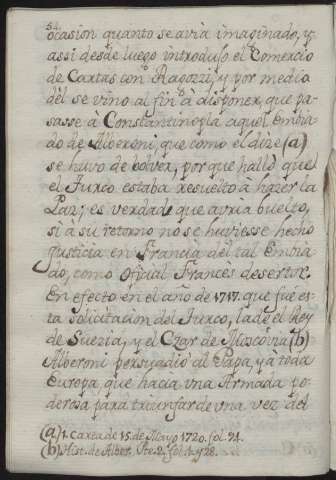 52.
ocasion quanto se avia imaginado, y
assi desde luego introduso el Comercio
de Cartas con Ragozzi, y por medio
dèl se vino al fin à disponer, que pa-
sasse à Constantinopla aquel Embia-
do de Alberoni, que como el dize (a)
se huvo de bolver, por que hallò que
el Turco estaba resuelto à hazer la
Paz; es verdad que avria buelto,
si à su retorno no se huviesse hecho
justicia en Francia del tal Embia-
do, como Oficial Francès desertor.
En efecto en el año de 1717. que fuè es-
ta solicitacion del Turco, la de el Rey
de Suezia, y el Czar de Moscovia (b)
Alberoni persuadiò al Papa, y à toda
Europa, que hacia una Armada po-
derosa para triunfar de una vez del
(a) 1. Carta de 15. de Mayo 1720. fol. 21.
(b) Hist. de Alber. Pte. 2. fol. 1. y 28.